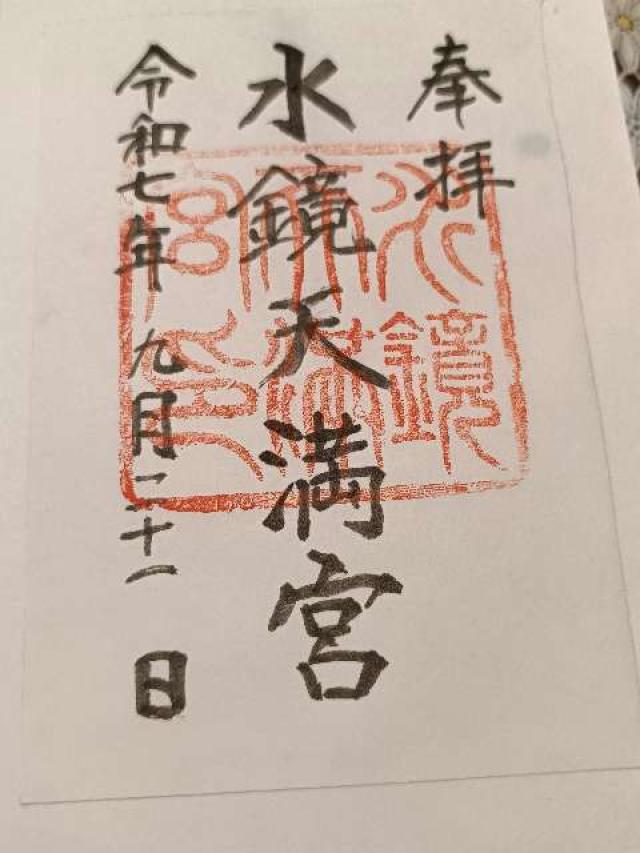 奉拝
水鏡天満宮
令和七年九月二十一日
水鏡
天満
宮印